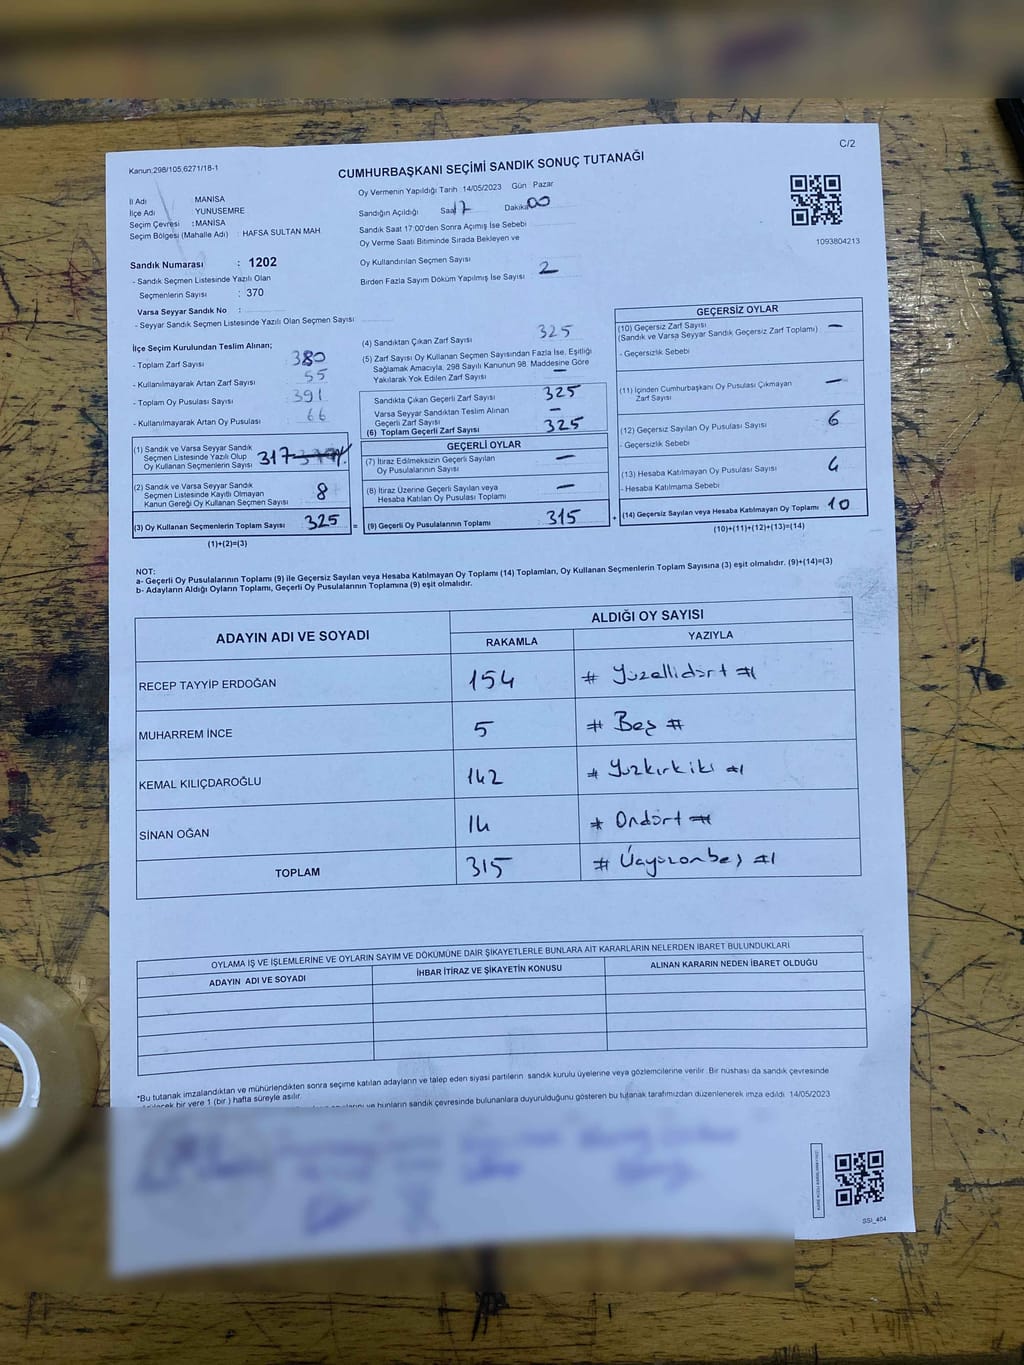 C/2
Kanun;298/105,6271/18-1
CUMHURBAŞKANI SEÇİMİ SANDIK SONUÇ TUTANAĞI
İl Adı MANİSA
İlçe Adı YUNUSEMRE
Seçim Çevresi : MANİSA
Seçim Bölgesi (Mahalle Adı) : HAFSA SULTAN MAH
Oy Vermenin Yapıldığı Tarih 14/05/2023 Gün Pazar
Sandığın Açıldığı Saat 17 Dakika 00
Sandık Saat 17:00'den Sonra Açımış İse Sebebi
Oy Verme Saati Bitiminde Sırada Bekleyen ve
Oy Kullandırılan Seçmen Sayısı
Birden Fazla Sayım Döküm Yapılmış İse Sayısı 2
1093804213
Sandık Numarası : 1202
- Sandık Seçmen Listesinde Yazılı Olan
Seçmenlerin Sayısı : 370
Varsa Seyyar Sandık No :
- Seyyar Sandık Seçmen Listesinde Yazılı Olan Seçmen Sayısı
İlçe Seçim Kurulundan Teslim Alınan;
- Toplam Zarf Sayısı 380
- Kullanılmayarak Artan Zarf Sayısı 55
- Toplam Oy Pusulası Sayısı 391
- Kullanılmayarak Artan Oy Pusulası 66
(1) Sandık ve Varsa Seyyar Sandık
Seçmen Listesinde Yazılı Olup
Oy Kullanan Seçmenlerin Sayısı 317
(2) Sandık ve Varsa Seyyar Sandık
Seçmen Listesinde Kayıtlı Olmayan
Kanun Gereği Oy Kullanan Seçmen Sayısı 8
(3) Oy Kullanan Seçmenlerin Toplam Sayısı 325 =
(1)+(2)=(3)
(4) Sandıktan Çıkan Zarf Sayısı 325
(5) Zarf Sayısı Oy Kullanan Seçmen Sayısından Fazla İse, Eşitliği
Sağlamak Amacıyla, 298 Sayılı Kanunun 98. Maddesine Göre
Yakılarak Yok Edilen Zarf Sayısı —
Sandıkta Çıkan Geçerli Zarf Sayısı 325
Varsa Seyyar Sandıktan Teslim Alınan
Geçerli Zarf Sayısı —
(6) Toplam Geçerli Zarf Sayısı 325
GEÇERLİ OYLAR
(7) İtiraz Edilmeksizin Geçerli Sayılan
Oy Pusulalarının Sayısı —
(8) İtiraz Üzerine Geçerli Sayılan veya
Hesaba Katılan Oy Pusulası Toplamı —
(9) Geçerli Oy Pusulalarının Toplamı 315 +
GEÇERSİZ OYLAR
(10) Geçersiz Zarf Sayısı —
(Sandık ve Varsa Seyyar Sandık Geçersiz Zarf Toplamı)
- Geçersizlik Sebebi
(11) İçinden Cumhurbaşkanı Oy Pusulası Çıkmayan
Zarf Sayısı —
(12) Geçersiz Sayılan Oy Pusulası Sayısı 6
- Geçersizlik Sebebi
(13) Hesaba Katılmayan Oy Pusulası Sayısı 4
- Hesaba Katılmama Sebebi
(14) Geçersiz Sayılan veya Hesaba Katılmayan Oy Toplamı 10
(10)+(11)+(12)+(13)=(14)
NOT:
a- Geçerli Oy Pusulalarının Toplamı (9) ile Geçersiz Sayılan veya Hesaba Katılmayan Oy Toplamı (14) Toplamları, Oy Kullanan Seçmenlerin Toplam Sayısına (3) eşit olmalıdır. (9)+(14)=(3)
b- Adayların Aldığı Oyların Toplamı, Geçerli Oy Pusulalarının Toplamına (9) eşit olmalıdır.
ADAYIN ADI VE SOYADI
ALDIĞI OY SAYISI
RAKAMLA YAZIYLA
RECEP TAYYİP ERDOĞAN 154 # Yüzellidört #
MUHARREM İNCE 5 # Beş #
KEMAL KILIÇDAROĞLU 142 # Yüzkırkiki #
SİNAN OĞAN 14 # Ondört #
TOPLAM 315 # Üçyüzonbeş #
OYLAMA İŞ VE İŞLEMLERİNE VE OYLARIN SAYIM VE DÖKÜMÜNE DAİR ŞİKAYETLERLE BUNLARA AİT KARARLARIN NELERDEN İBARET BULUNDUKLARI
ADAYIN ADI VE SOYADI İHBAR İTİRAZ VE ŞİKAYETİN KONUSU ALINAN KARARIN NEDEN İBARET OLDUĞU
*Bu tutanak imzalandıktan ve mühürlendikten sonra seçime katılan adayların ve talep eden siyasi partilerin sandık kurulu üyelerine veya gözlemcilerine verilir. Bir nüshası da sandık çevresinde
bir yere 1 (bir) hafta süreyle asılır.
ve bunların sandık çevresinde bulunanlara duyurulduğunu gösteren bu tutanak tarafımızdan düzenlenerek imza edildi 14/05/2023
SSİ_404